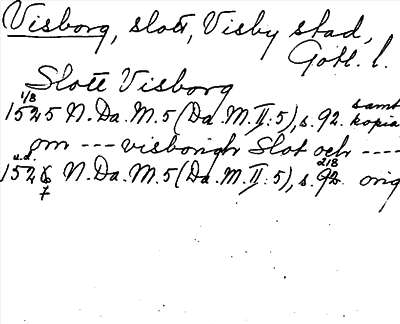 Visborg, slott, Visby stad,
Gotl. l.
Slott Visborg
1/8 samt
1525 N. Da. M. 5 (Da. M. II: 5), s. 92. kopia
om --- visborigh Slot och ----
u.d. 213
1526 N. Da. M. 5 (Da. M. II: 5), s. 92. orig
7